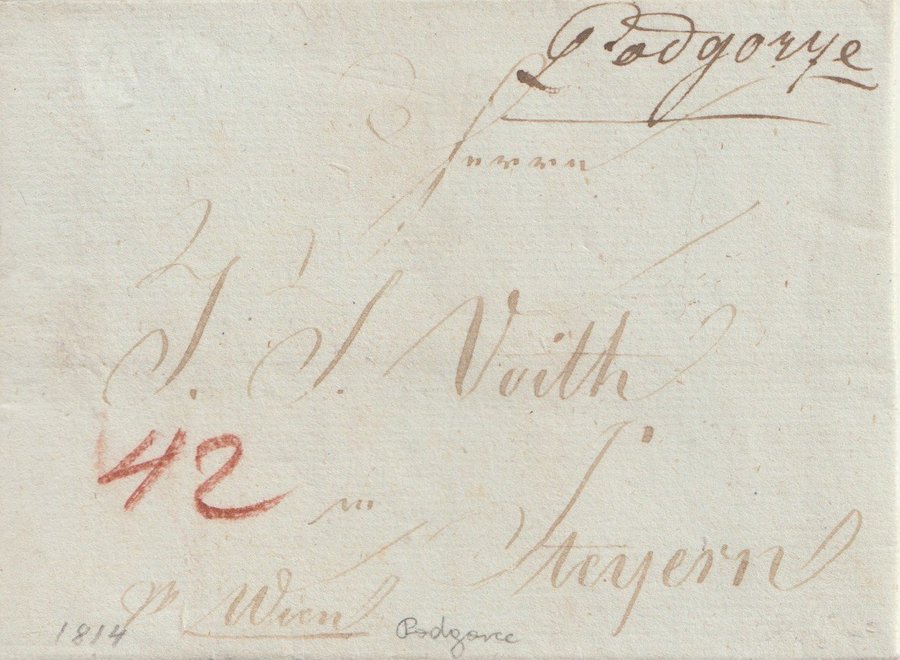 Podgorze
Herrn
J. J. Voith
42
in
Steyern
pr Wien
1814
Podgorze